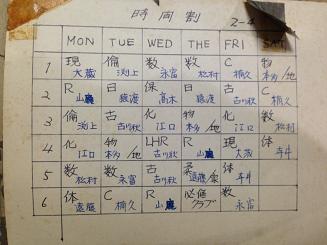 時間割
2-4
MON TUE WED THU FRI SAT
1 現 倫 数 数 C 物
大蔵 渕上 永富 松村 桐久 本多/地
2 R 日 保 日 古 C
山麗 猿渡 高木 猿渡 古川秋 桐久
3 倫 古 化 物 化 数
渕上 古川秋 江口 本多/地 江口 松村
4 化 物 LHR R 現 体
江口 本多/地 山麗 大蔵 寺井
5 数 数 古 柔 体
松村 永富 古川秋 遠藤 寺井
6 体 C R 必修 数
遠藤 桐久 山麗 クラブ 永富